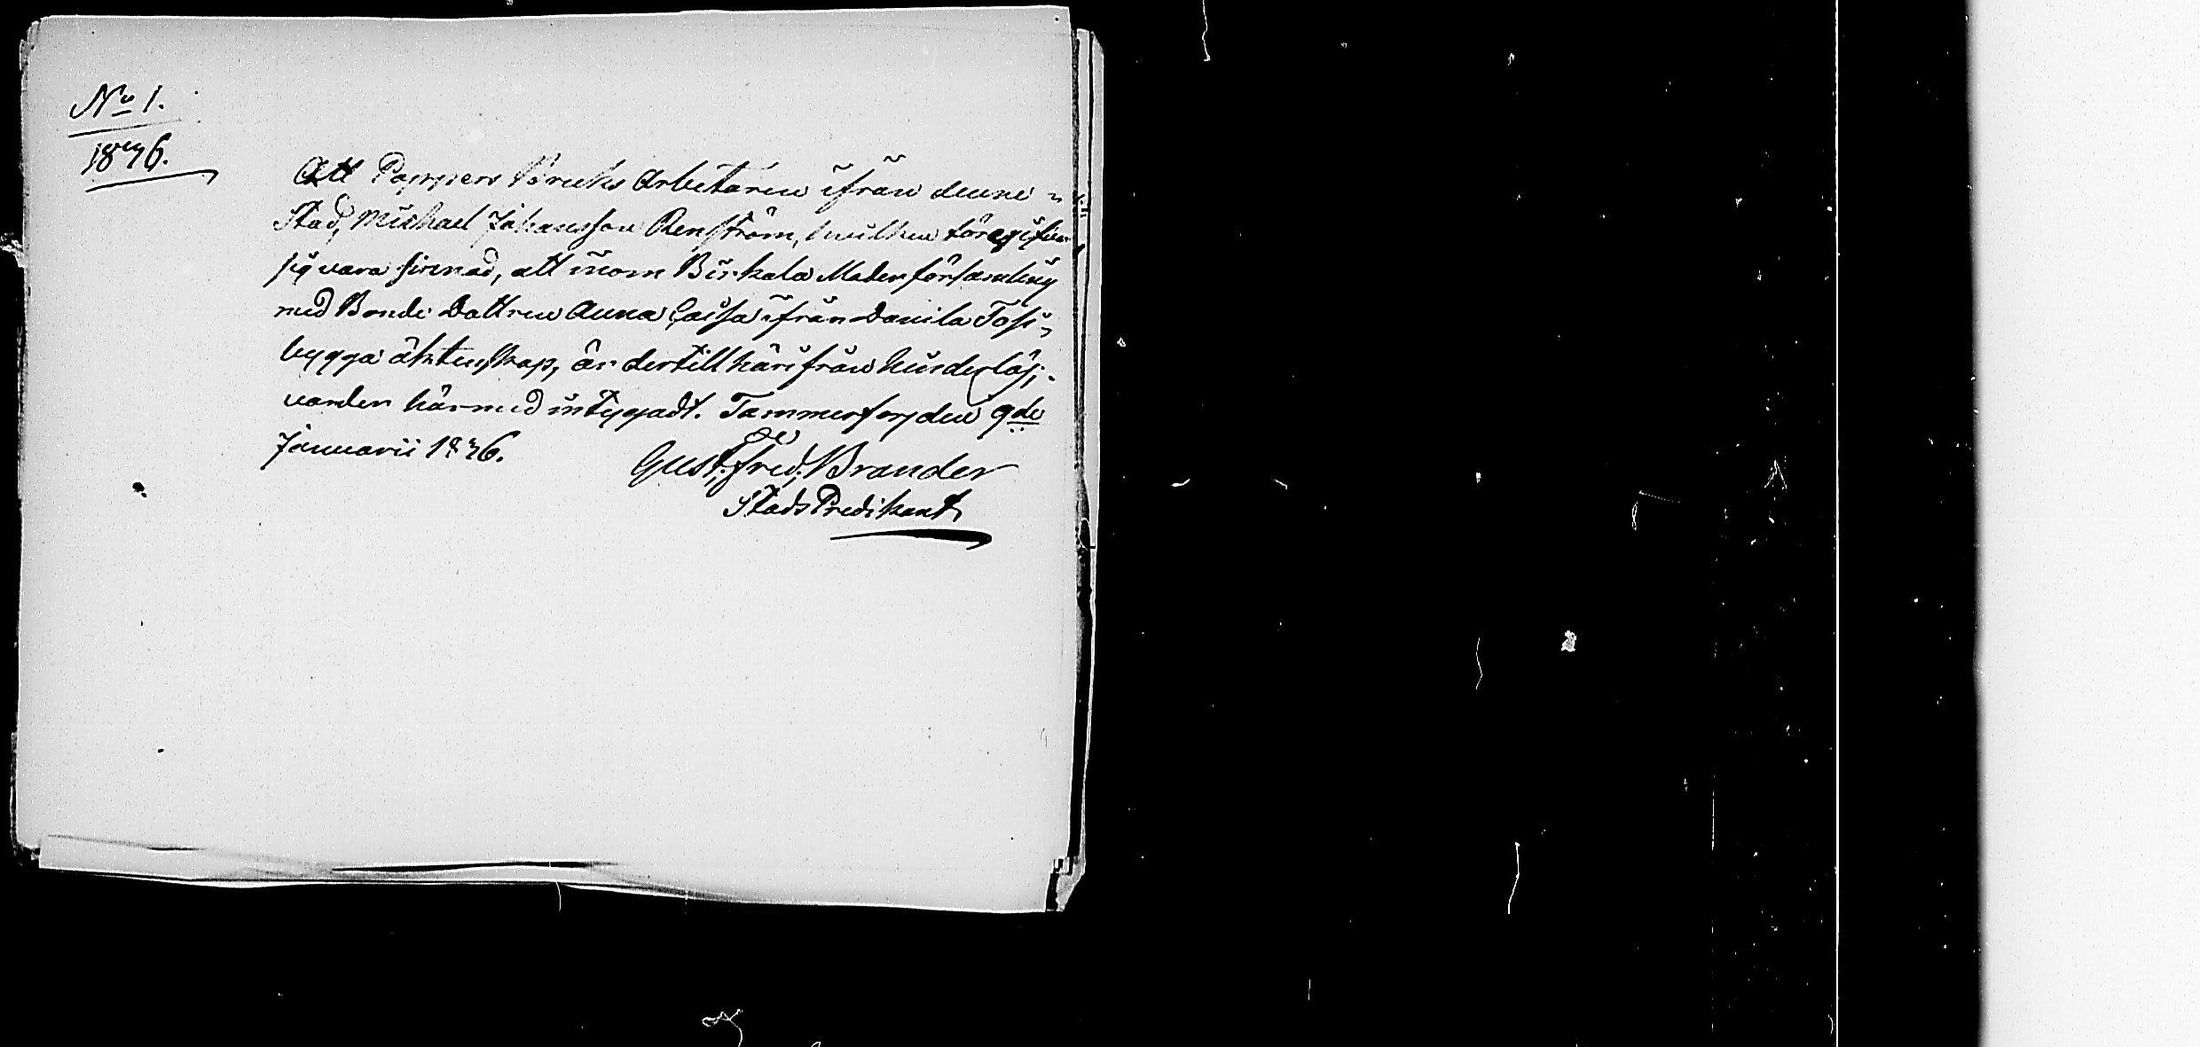 No 1.
1836.
Att Pappers Bruks Arbetaren ifrån denne
Stad, Michael Johansson Renström, hvilken föregifver
sig vara sinnad, att inom Birkala Moderförsamling
med Bonde Dottren Anna Caisa ifrån Danila Tosi
bygga äktenskap, är dertill härifrån hinderlös;
varder härmed intygadt. Tammerfors den 9de
Januarii 1836.
Gust. Fred. Brander
StadsPredikant